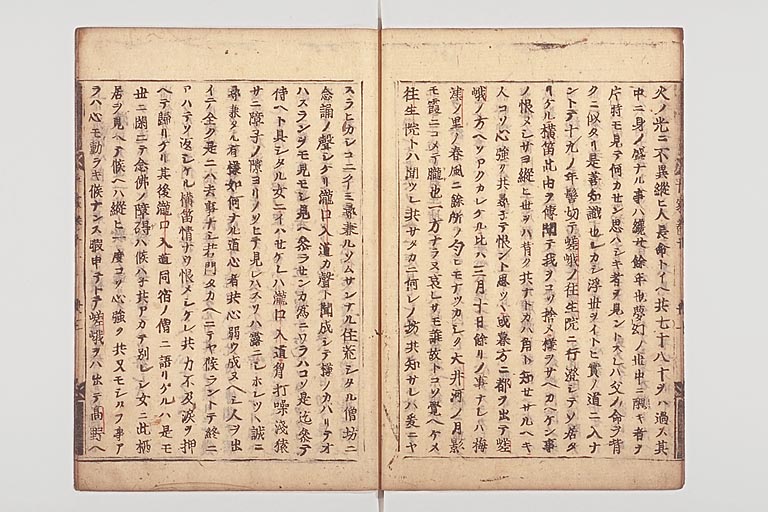 火ノ光ニ不異縦ヒ人長命トイヘ共七十八十ヲハ過ス其
中ニ身ノ盛ナル事ハ纔廿余年也夢幻ノ世中ニ醜キ者ヲ
片時モ見テ何カセン思ハシキ者ヲ見ントスレハ父ノ命ヲ背
クニ似タリ是善知識也シカシ浮世ヲイトヒ實ノ道ニ入ナ
ントテ十九ノ年髻切テ嵯峨ノ往生院ニ行澄シテソ居タ
リケル横笛此由ヲ傳聞テ我ヲコソ捨メ様ヲサヘカヘケン事
ノ恨メシサヨ縦ヒ世ヲハ背ク共ナトカハ角ト知セサルヘキ
人コソ心強ク共尋子テ恨ント思ツヽ或暮方ニ都ヲ出テ嵯
峨ノ方ヘソアクカレケル比ハ三月十日余リノ事ナレハ梅
津ノ里ノ春風ニ余所ノ匂ヒモナツカシク大井河ノ月影
モ霞ニコメテ朧也一方ナラヌ哀レサモ誰故トコソ覺ヘケメ
往生院トハ聞ツレ共サタカニ何レノ坊共知サレハ爰ニヤ
スラヒカシコニタヽスミ尋兼ルソムサンナル住荒シタル僧坊ニ
念誦ノ聲シケリ瀧口入道カ聲ト聞成シテ様ノカハリテオ
ハスランヲモ見モシ見ヘ參ラサンカ為ニワラハコソ是迄參テ
侍ヘト具シタル女ニイハセケレハ瀧口入道胸打噪淺猿
サニ障子ノ隙ヨリノソヒテ見レハスソハ露ニシホレツヽ誠ニ
尋兼タル有様如何ナル道心者共心弱ウ成ヌヘシ人ヲ出
イテ全ク是ニハ去事ナシ若門タカヘニテヤ候ラントテ終ニ
アハテソ返シケル横笛情ナウ恨メシケレ共力不及涙ヲ押
ヘテ歸リケリ其後瀧口入道同宿ノ僧ニ語リケルハ是モ
世ニ閑ニテ念佛ノ障碍ハ候ハ子共アカテ別レシ女ニ此栖
居ヲ見ヘテ候ヘハ縦ヒ一度コソ心強ク共又モシタフ事ア
ラハ心モ動ラキ候ナンス暇申テトテ嵯峨ヲハ出テ高野ヘ